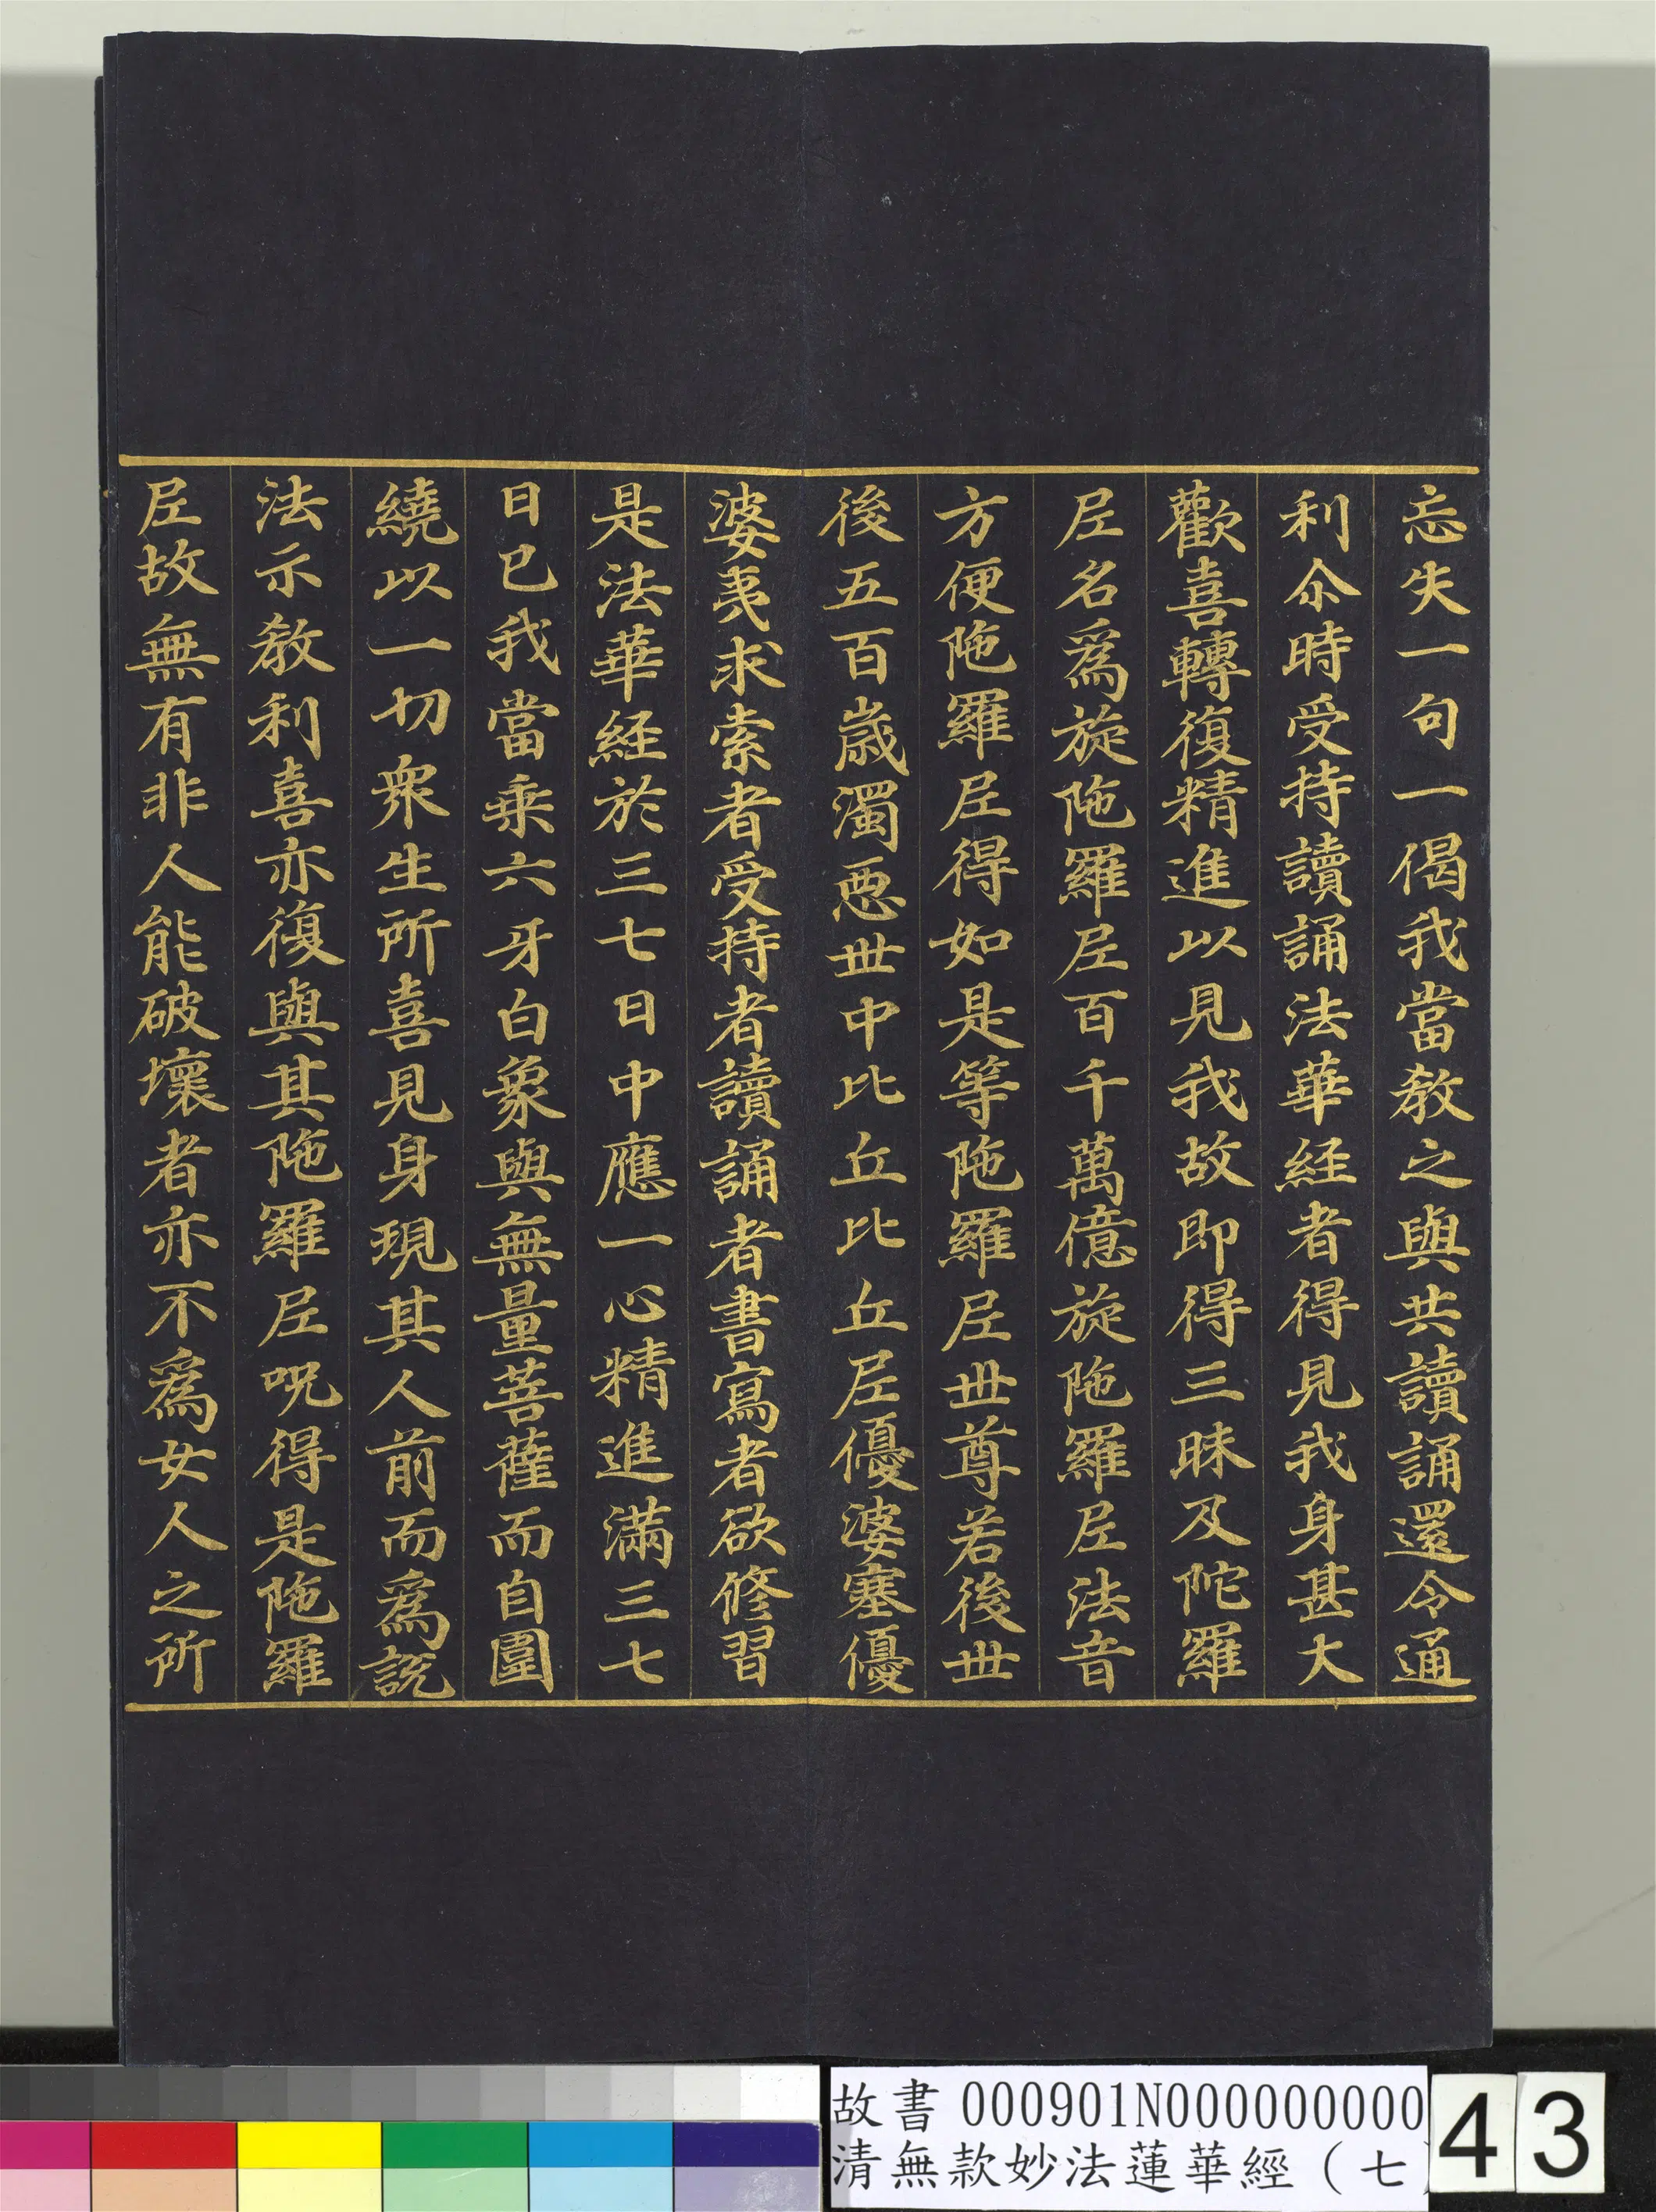 忘失一句一偈我當教之與共讀誦還令通
利尒時受持讀誦法華経者得見我身甚大
歡喜轉復精進以見我故即得三昧及陀羅
𡰱名為旋陁羅𡰱百千萬億旋陁羅𡰱法音
方便陁羅𡰱得如是等陁羅𡰱丗尊若後丗
後五百歳濁惡丗中比丘比丘𡰱優婆塞優
婆夷求索者受持者讀誦者書寫者欲修習
是法華経於三七日中應一心精進滿三七
日已我當乗六牙白象與無量菩薩而自圍
繞以一切衆生所喜見身現其人前而為説
法示教利喜亦復與其陁羅𡰱呪得是陁羅
𡰱故無有非人能破壞者亦不為女人之所
故書 000901N000000000
清無款妙法蓮華經（七
43